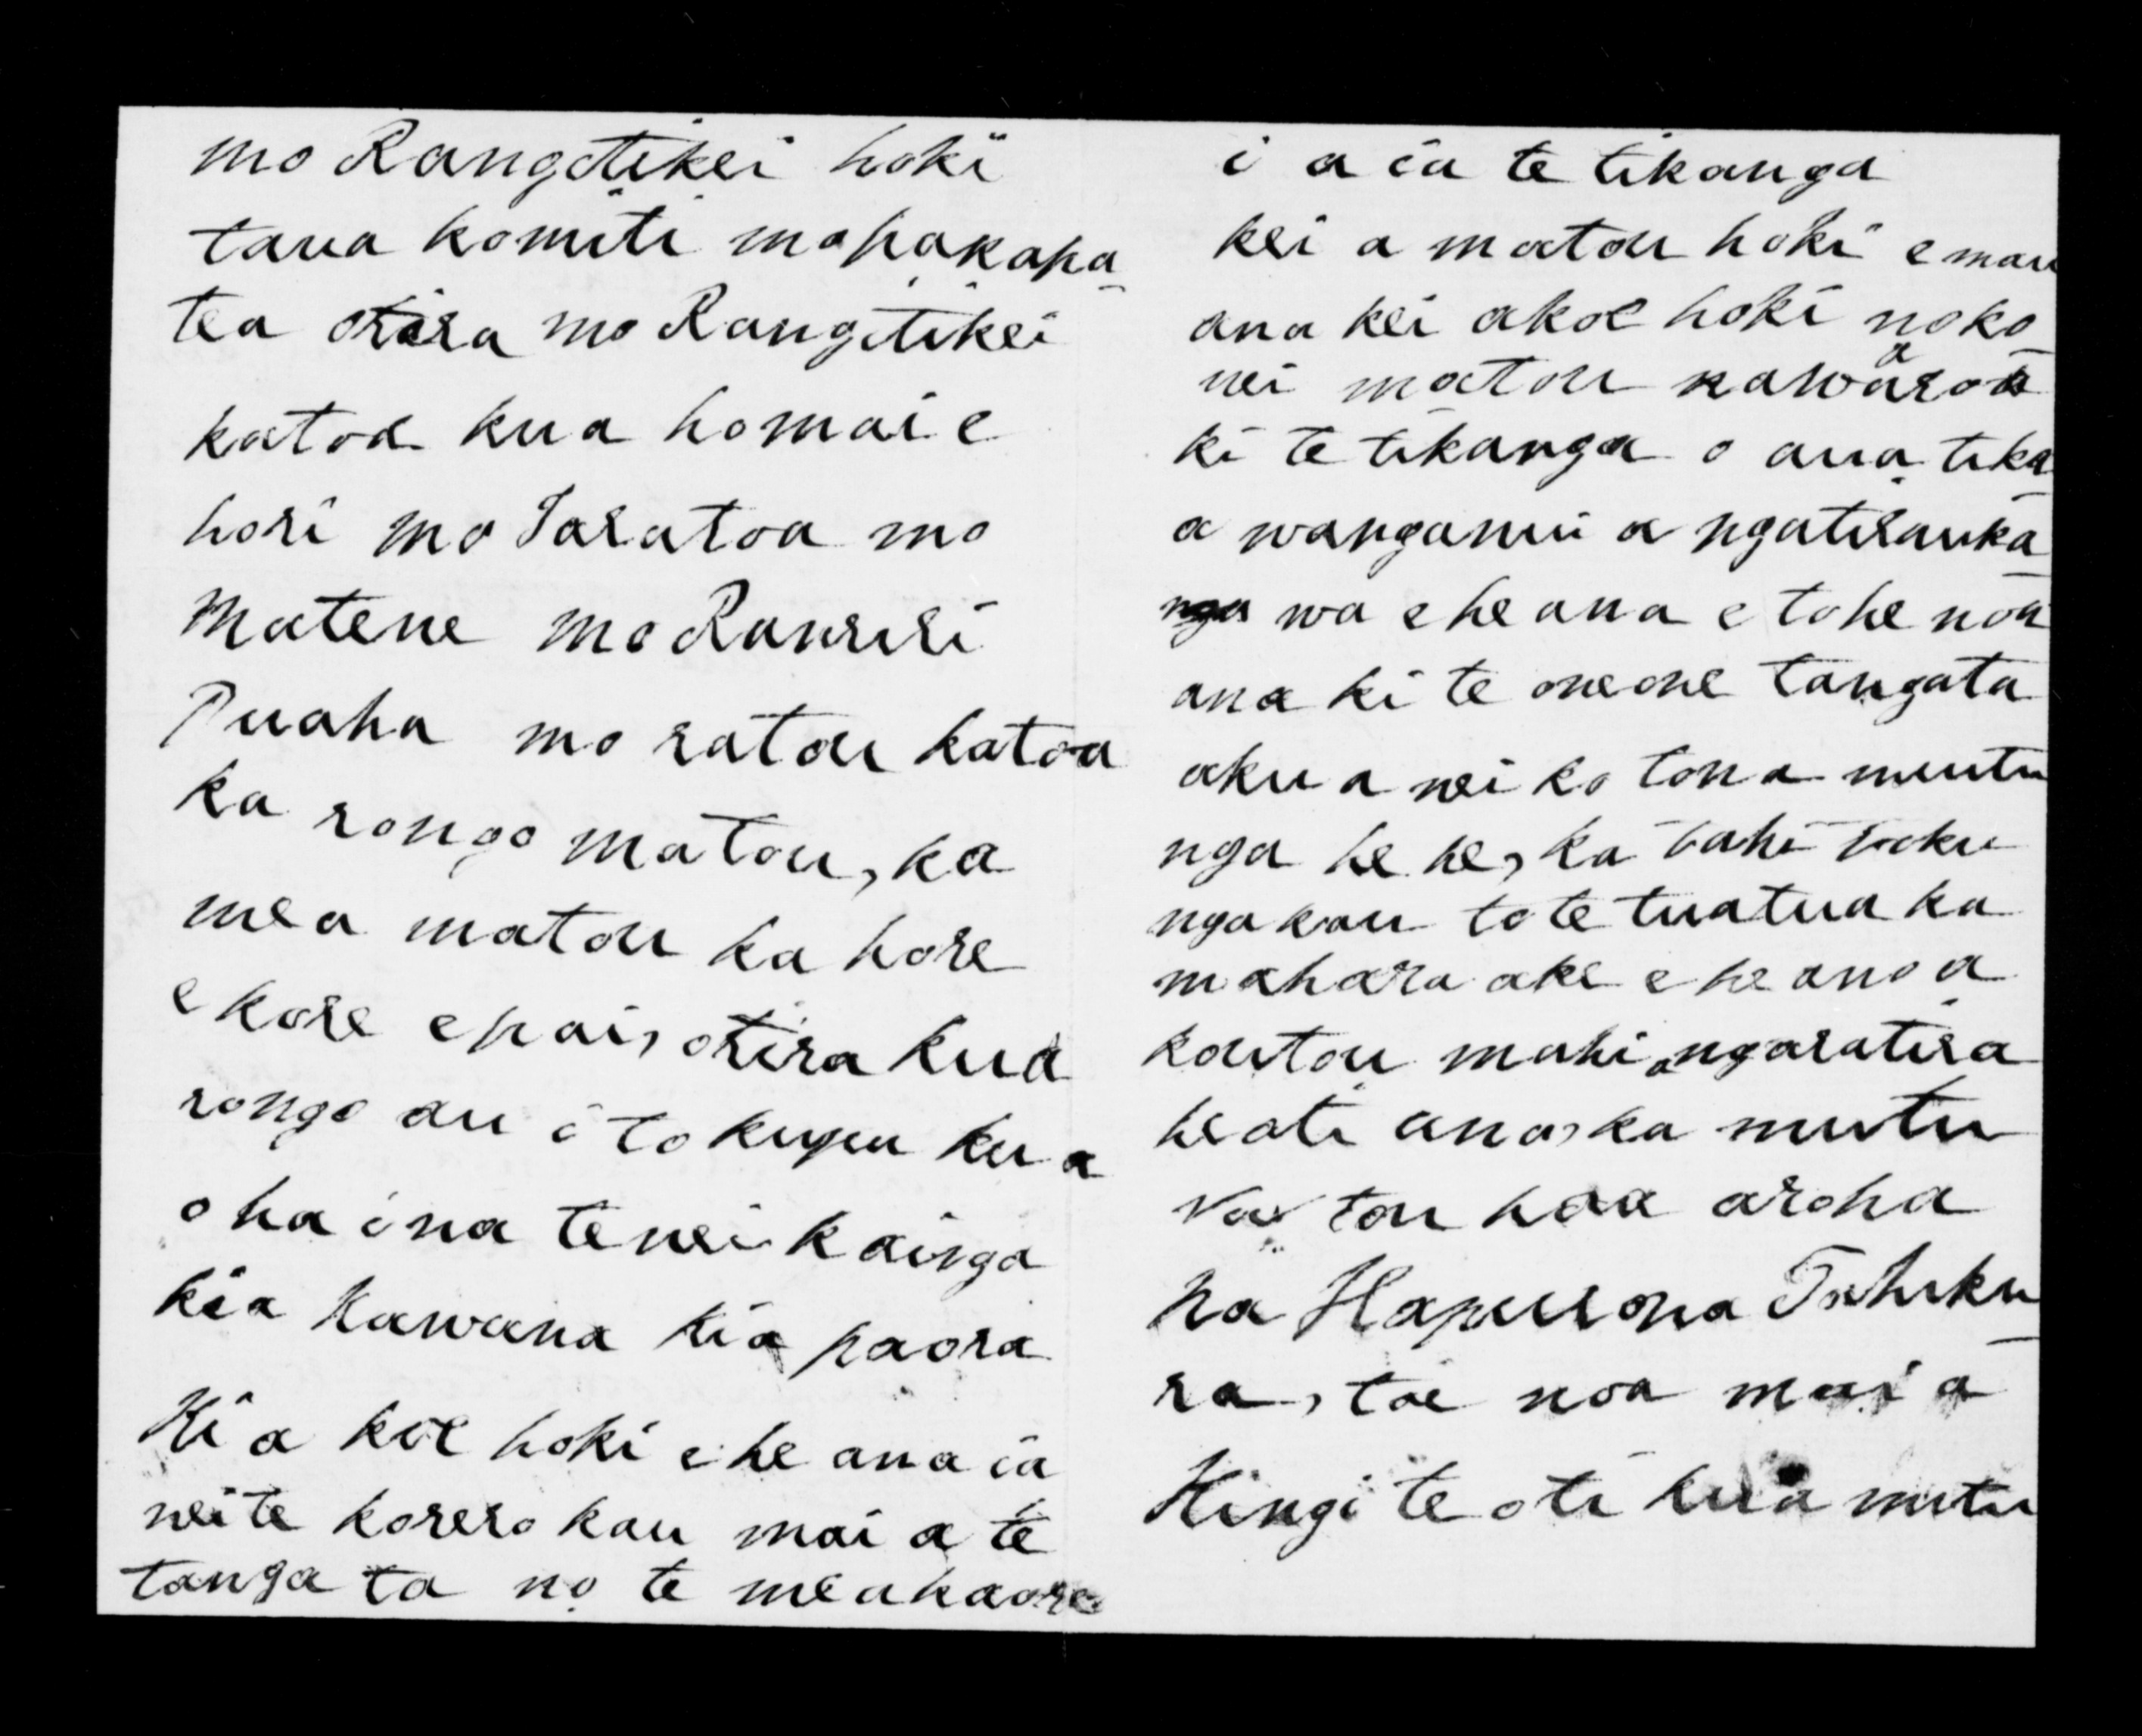 mo Rangitikei hoki
taua komiti mopakapa-
tea otira mo Rangitikei
katoa kua homai e
hori mo Taratoa mo
Matene mo Ranriri
Puaha mo ratou katoa
ka rongo matou, ka
mea matou ka hore
e kore e pai, otira kua
rongo au i to kupu kua
oha ina tenei kainga
kia Kawana kia paora
Ki a koe hoki e he ana ia
nei te korero kau mai a te
tangata no te mea kaore
i a ia te tikanga
kei a matou hoki e mau
ana kei akoe hoki noko-
nei matou
ki te tikanga o aua tika
a wanganui a ngatirauka-
wa e he ana e tohe noa
ana ki te oneone tangata
akuanei ko tona mutu
nga he he, ka tahi toku
ngakau to te tuatua ka
mahara ake e he ano a
koutou mahi a ngaratira
heoti ano, ka mutu
Na tou hoa aroha
Na Hapurona Tohuku-
ra, tae noa mai a
Kingi te oti kua mutu